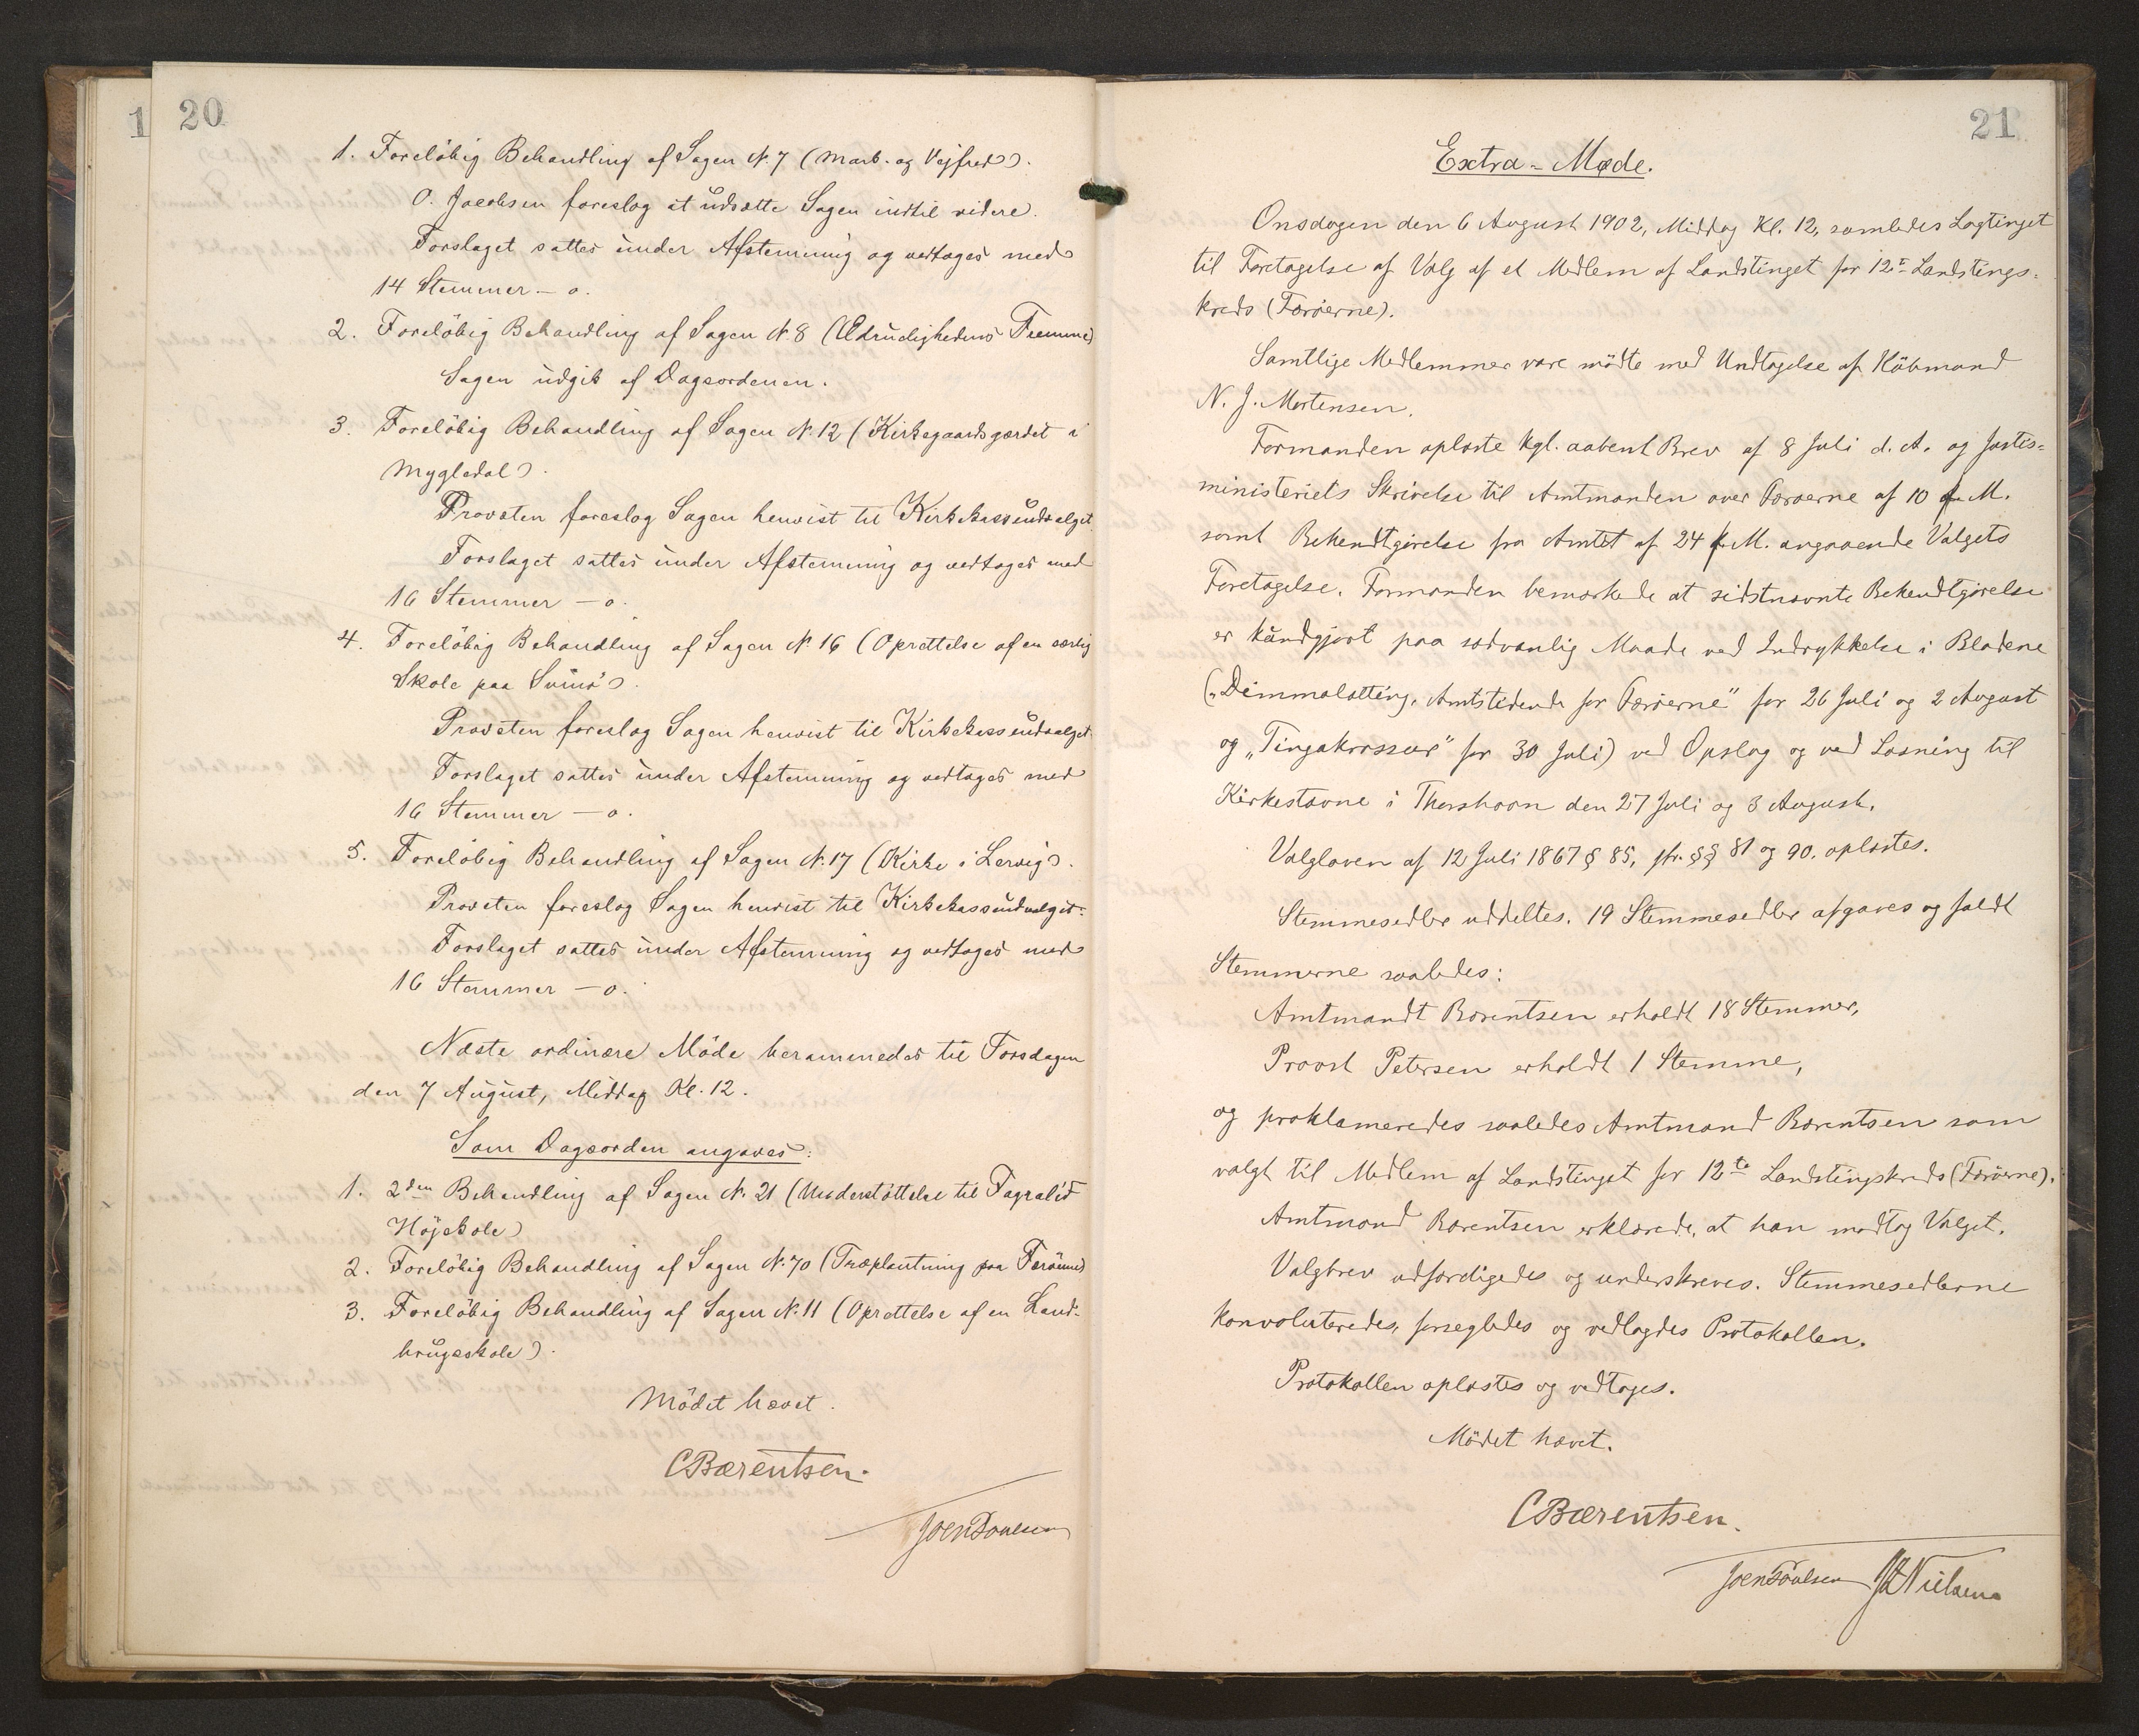 20
1. Foreløbig Behandling af Sagen N. 7 (Mark- og Vejfred).
O. Jacobsen foreslog at udsætte Sagen indtil videre.
Forslaget sattes under Afstemning og vedtoges med
14 Stemmer – 0.
2. Foreløbig Behandling af Sagen N. 8 (Ædruelighedens Fremme)
Sagen udgik af Dagsordenen.
3. Foreløbig Behandling af Sagen N. 12 (Kirkegaardsgærdet i
Mygledal).
Provsten foreslog Sagen henvist til Kirkekasseudvalget.
Forslaget sattes under Afstemning og vedtoges med
16 Stemmer – 0.
4. Foreløbig Behandling af Sagen N. 16 (Oprettelse af en særlig
Skole paa Svinø).
Provsten foreslog Sagen henvist til Kirkekasseudvalget.
Forslaget sattes under Afstemning og vedtoges med
16 Stemmer – 0.
5. Foreløbig Behandling af Sagen N. 17 (Kirke i Lervig).
Provsten foreslog Sagen henvist til Kirkekasseudvalget.
Forslaget sattes under Afstemning og vedtoges med
16 Stemmer – 0.
Næste ordinære Møde berammedes til Torsdagen
den 7 August, Middag Kl. 12.
Som Dagsorden angaves:
1. 2den Behandling af Sagen N. 21 (Understøttelse til Fagralid
Højskole)
2. Foreløbig Behandling af Sagen N. 70 (Træplantning paa Færøerne)
3. Foreløbig Behandling af Sagen N. 11 (Oprettelse af en Land-
brugsskole).
Mødet hævet.
CBærentsen.
Joen Poulsen
21
Extra-Møde.
Onsdagen den 6 August 1902, Middag Kl. 12, samledes Lagtinget
til Foretagelse af Valg af et Medlem af Landstinget for 12te Landstings-
kreds (Færøerne).
Samtlige Medlemmer vare mødte med Undtagelse af Købmand
N. J. Mortensen.
Formanden oplæste kgl. aabent Brev af 8 Juli d. A. og Justis-
ministeriets Skrivelse til Amtmanden over Færøerne af 10 f. M.
samt Bekendtgørelse fra Amtet af 24 f. M. angaaende Valgets
Foretagelse. Formanden bemærkede at sidstnævnte Bekendtgørelse
er kundgjort paa sædvanlig Maade ved Indrykkelse i Bladene
(„Dimmalætting, Amtstidende for Færøerne" for 26 Juli og 2 August
og „Tingakrossur" for 30 Juli) ved Opslag og ved Læsning til
Kirkestævne i Thorshavn den 27 Juli og 3 August.
Valgloven af 12 Juli 1867 § 85, jfr. §§ 81 og 90. oplæstes.
Stemmesedler uddeltes. 19 Stemmesedler afgaves og faldt
Stemmerne saaledes:
Amtmandt Bærentsen erholdt 18 Stemmer,
Provst Petersen erholdt 1 Stemme,
og proklameredes saaledes Amtmand Bærentsen som
valgt til Medlem af Landstinget for 12te Landstingskreds (Færøerne).
Amtmand Bærentsen erklærede, at han modtog Valget.
Valgbrev udfærdigedes og underskreves. Stemmesedlerne
konvoluteredes, forsegledes og vedlagdes Protokollen.
Protokollen oplæstes og vedtoges.
Mødet hævet.
CBærentsen.
Joen Poulsen Nielsen